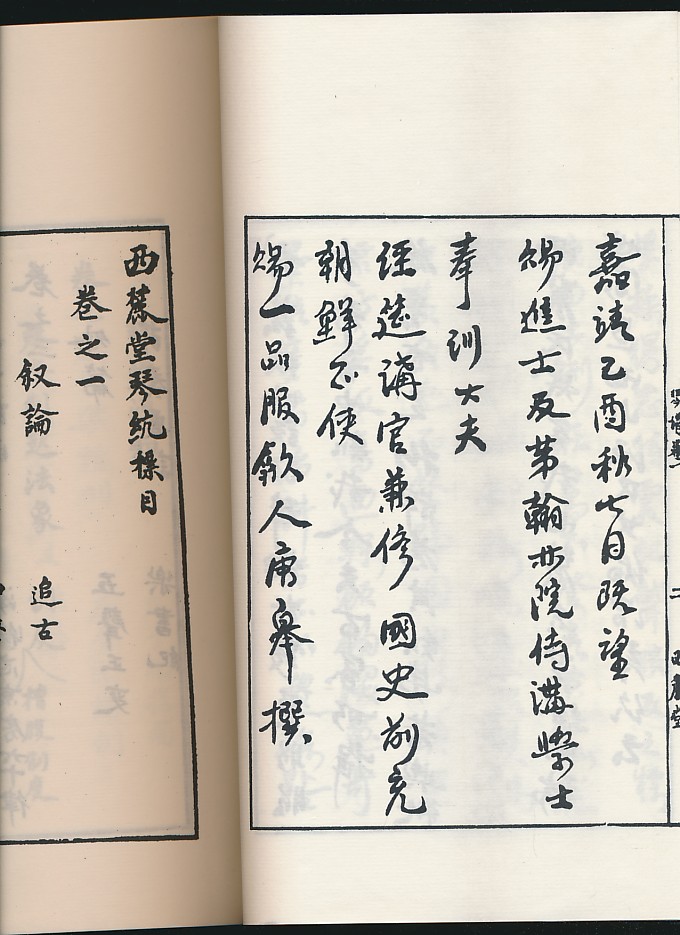 嘉靖乙酉秋七月既望
賜進士及第翰林院侍講學士
奉訓大夫
經筵講官兼修 國史前充
朝鮮正使
賜一品服歙人唐皋撰
西麓堂琴統樂目
卷之一
叙論
追古